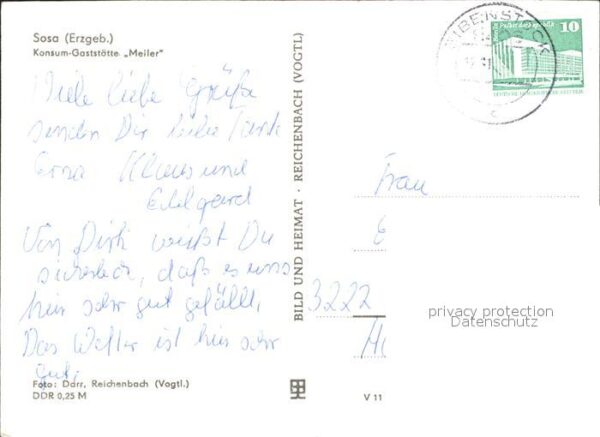 Sosa (Erzgeb.)
Konsum-Gaststätte „Meiler"
Viele liebe Grüße
senden Dir liebe Tante
Erna Klaus und
Edelgard
Von Dirk weißt Du
sicherlich, daß es uns
hier sehr gut gefällt.
Das Wetter ist hier sehr
gut.
Foto: Darr, Reichenbach (Vogtl.)
DDR 0,25 M
BILD UND HEIMAT · REICHENBACH (VOGTL)
V 11
EIBENSTOCK
10
Frau
3222
privacy protection
Datenschutz